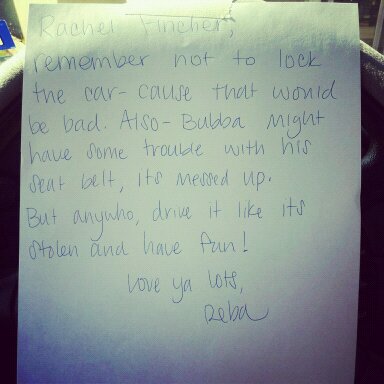 Rachel Fincher,
remember not to lock
the car- cause that would
be bad. Also- Bubba might
have some trouble with his
seat belt, its messed up.
But anywho, drive it like its
stolen and have fun!
Love ya lots,
Reba